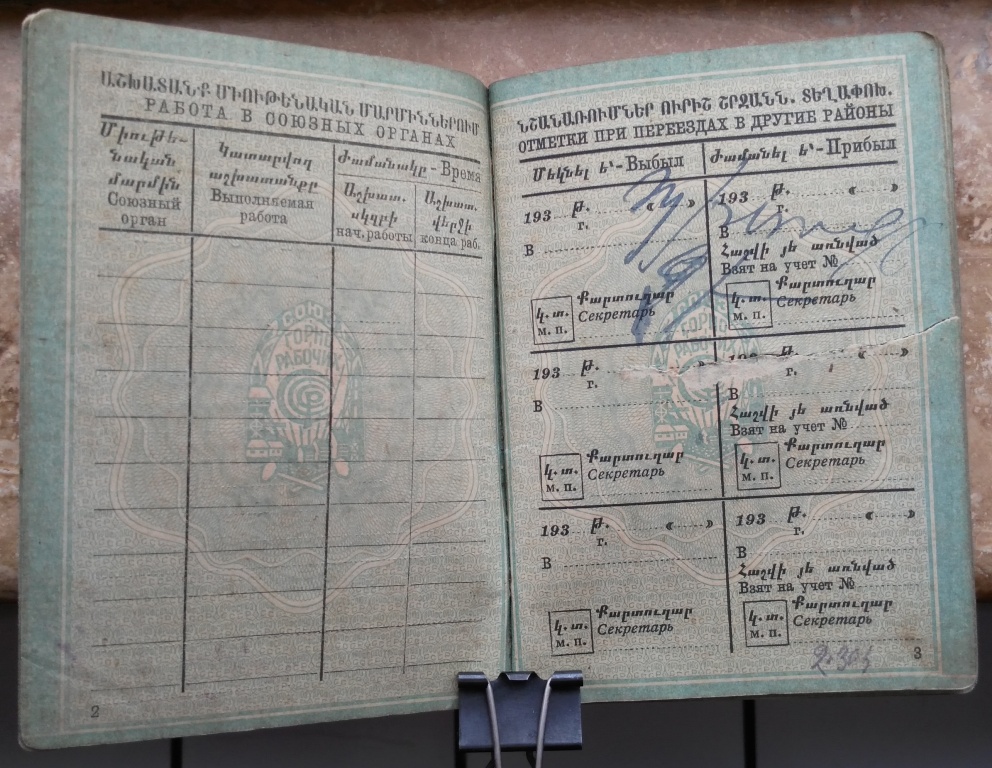 ԱՇԽԱՏԱՆՔ ՄԻՈՒԹԵՆԱԿԱՆ ՄԱՐՄԻՆՆԵՐՈՒՄ
РАБОТА В СОЮЗНЫХ ОРГАНАХ
Միութե-
նական
մարմին
Союзный
орган
Կատարվող
աշխատանքը
Выполняемая
работа
Ժամանակը - Время
Աշխատ.
սկզբի
нач. работы
Աշխատ.
վերջի
конца раб.
СОЮЗ
ГОРНО
РАБОЧИХ
2
ՆՇԱՆԱՌՈՒՄՆԵՐ ՈՒՐԻՇ ՇՐՋԱՆՆ. ՏԵՂԱՓՈԽ.
ОТМЕТКИ ПРИ ПЕРЕЕЗДАХ В ДРУГИЕ РАЙОНЫ
Մեկնել է՝ - Выбыл
Ժամանել է՝ - Прибыл
193 թ. « »
г.
В
կ. տ.
м. п.
Քարտուղար
Секретарь
193 թ. « »
г.
В
Հաշվի յե առնված
Взят на учет №
կ. տ.
м. п.
Քարտուղար
Секретарь
СОЮЗ
ГОРНО
РАБОЧИХ
193 թ. »
г.
В
կ. տ.
м. п.
Քարտուղար
Секретарь
193 թ. « »
г.
В
Հաշվի յե առնված
Взят на учет №
կ. տ.
м. п.
Քարտուղար
Секретарь
193 թ. « »
г.
В
կ. տ.
м. п.
Քարտուղար
Секретарь
193 թ. « »
г.
В
Հաշվի յե առնված
Взят на учет №
կ. տ.
м. п.
Քարտուղար
Секретарь
3